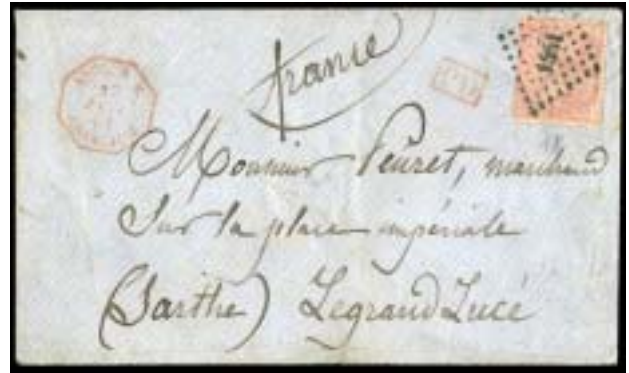 france
PD
Monsieur Peuret, marchand
Sur la place impériale
(Sarthe) Legrand Lucé